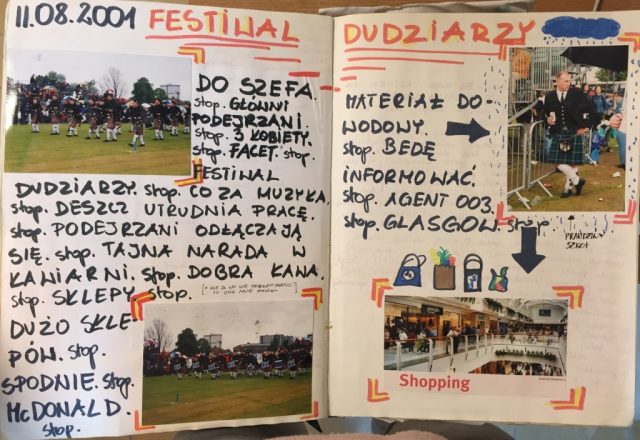 11.08.2001 FESTIWAL
DO SZEFA.
stop. GŁÓWNI
PODEJRZANI.
stop. 3 KOBIETY.
stop. FACET. stop.
FESTIWAL
DUDZIARZY. stop. CO ZA MUZYKA.
stop. DESZCZ UTRUDNIA PRACĘ.
stop. PODEJRZANI ODŁĄCZAJĄ
SIĘ. stop. TAJNA NARADA W
KAWIARNI. stop. DOBRA KAWA.
stop. SKLEPY. stop.
DUŻO SKLE-
PÓW. stop.
SPODNIE. stop.
McDONALD.
stop.
DUDZIARZY
MATERIAŁ DO-
WODOWY.
stop. BĘDĘ
INFORMOWAĆ.
stop. AGENT 003.
stop. GLASGOW. stop.
PRAWDZIWY
SZKOT
Shopping